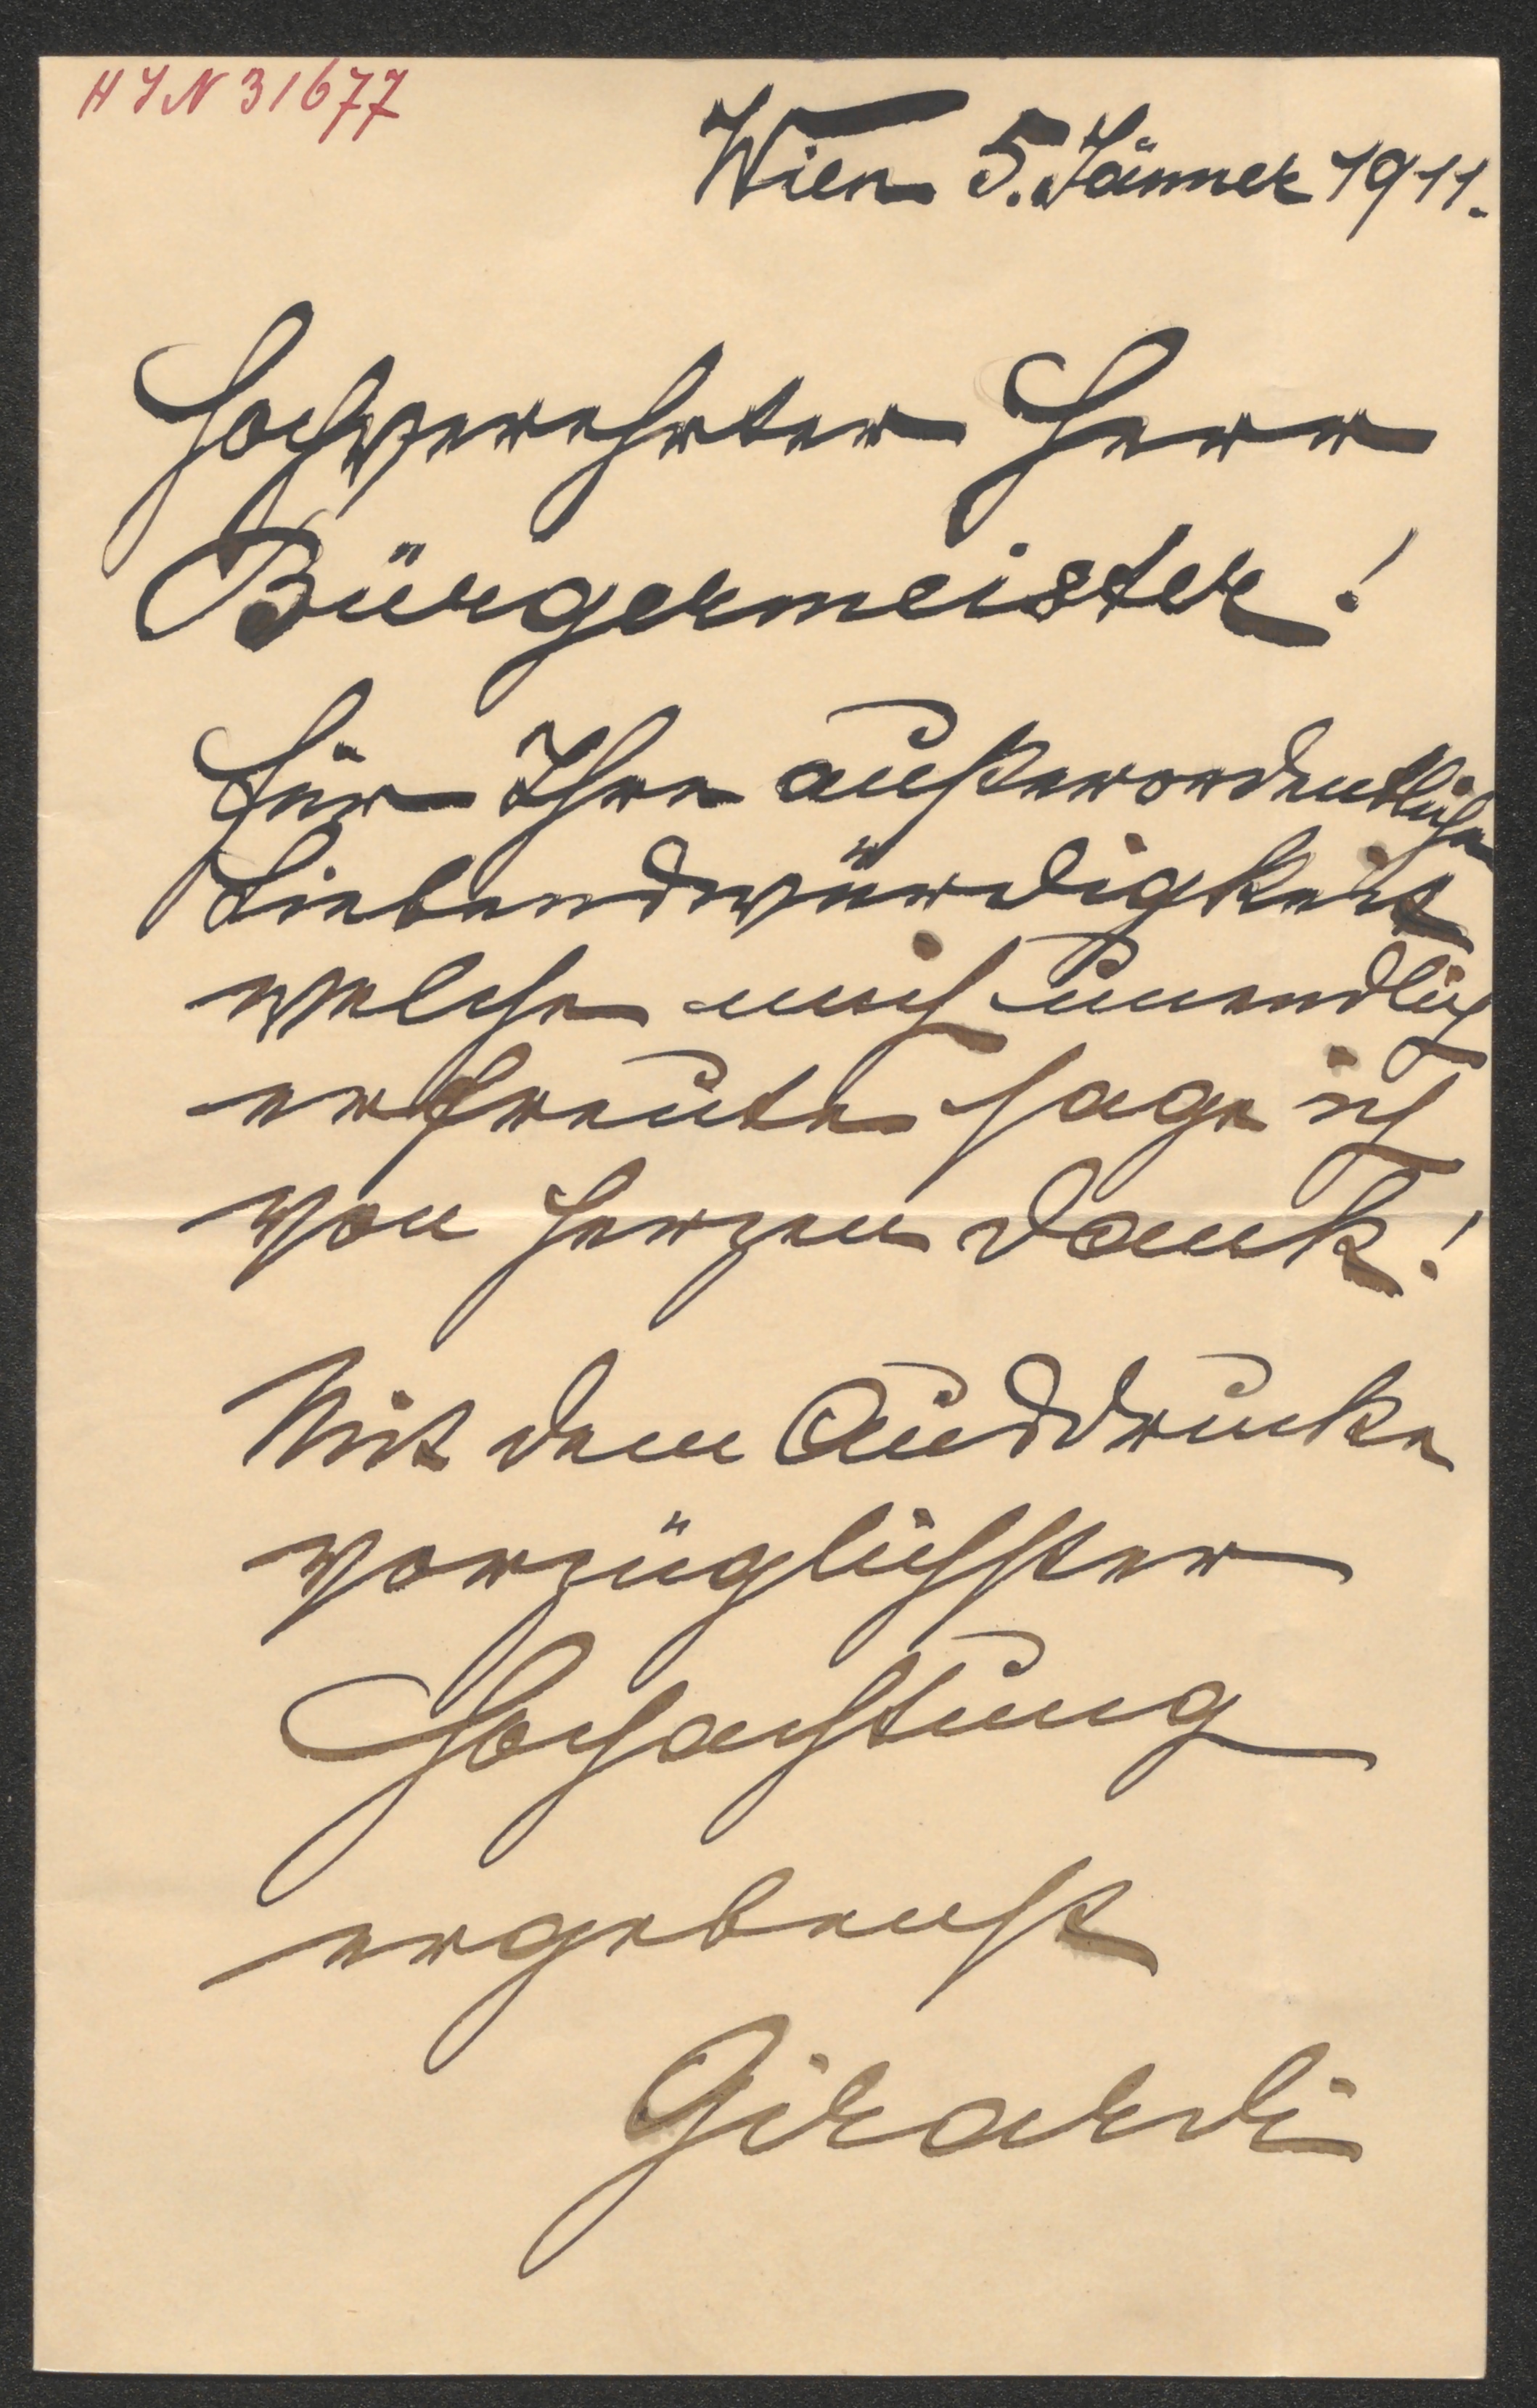 HIN 31677
Wien 5. Jänner 1911.
Hochverehrter Herr
Bürgermeister!
Für Ihre außerordentliche
Liebenswürdigkeit
welche mich unendlich
erfreute sage ich
von Herzen Dank!
Mit dem Ausdrucke
vorzüglichster
Hochachtung
ergebenst
Girardi